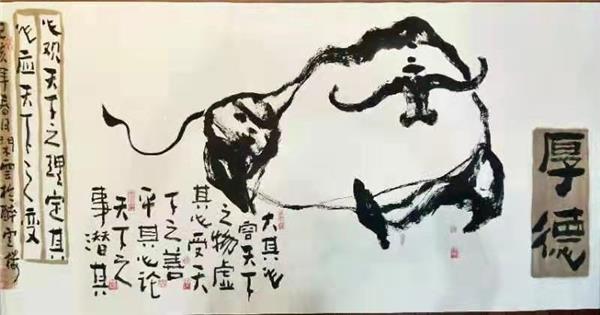 厚德
大其心
容天下
之物虚
其心受天
下之善
平其心论
天下之
事潜其
心观天下之理定其
心应天下之变
己亥年春雲於醉雲